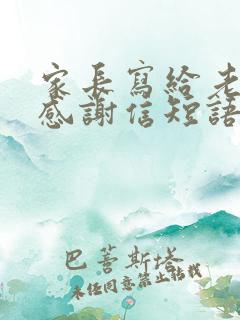 家長寫給老
感謝信短語
巴蒼斯塔
未經同意禁止轉載